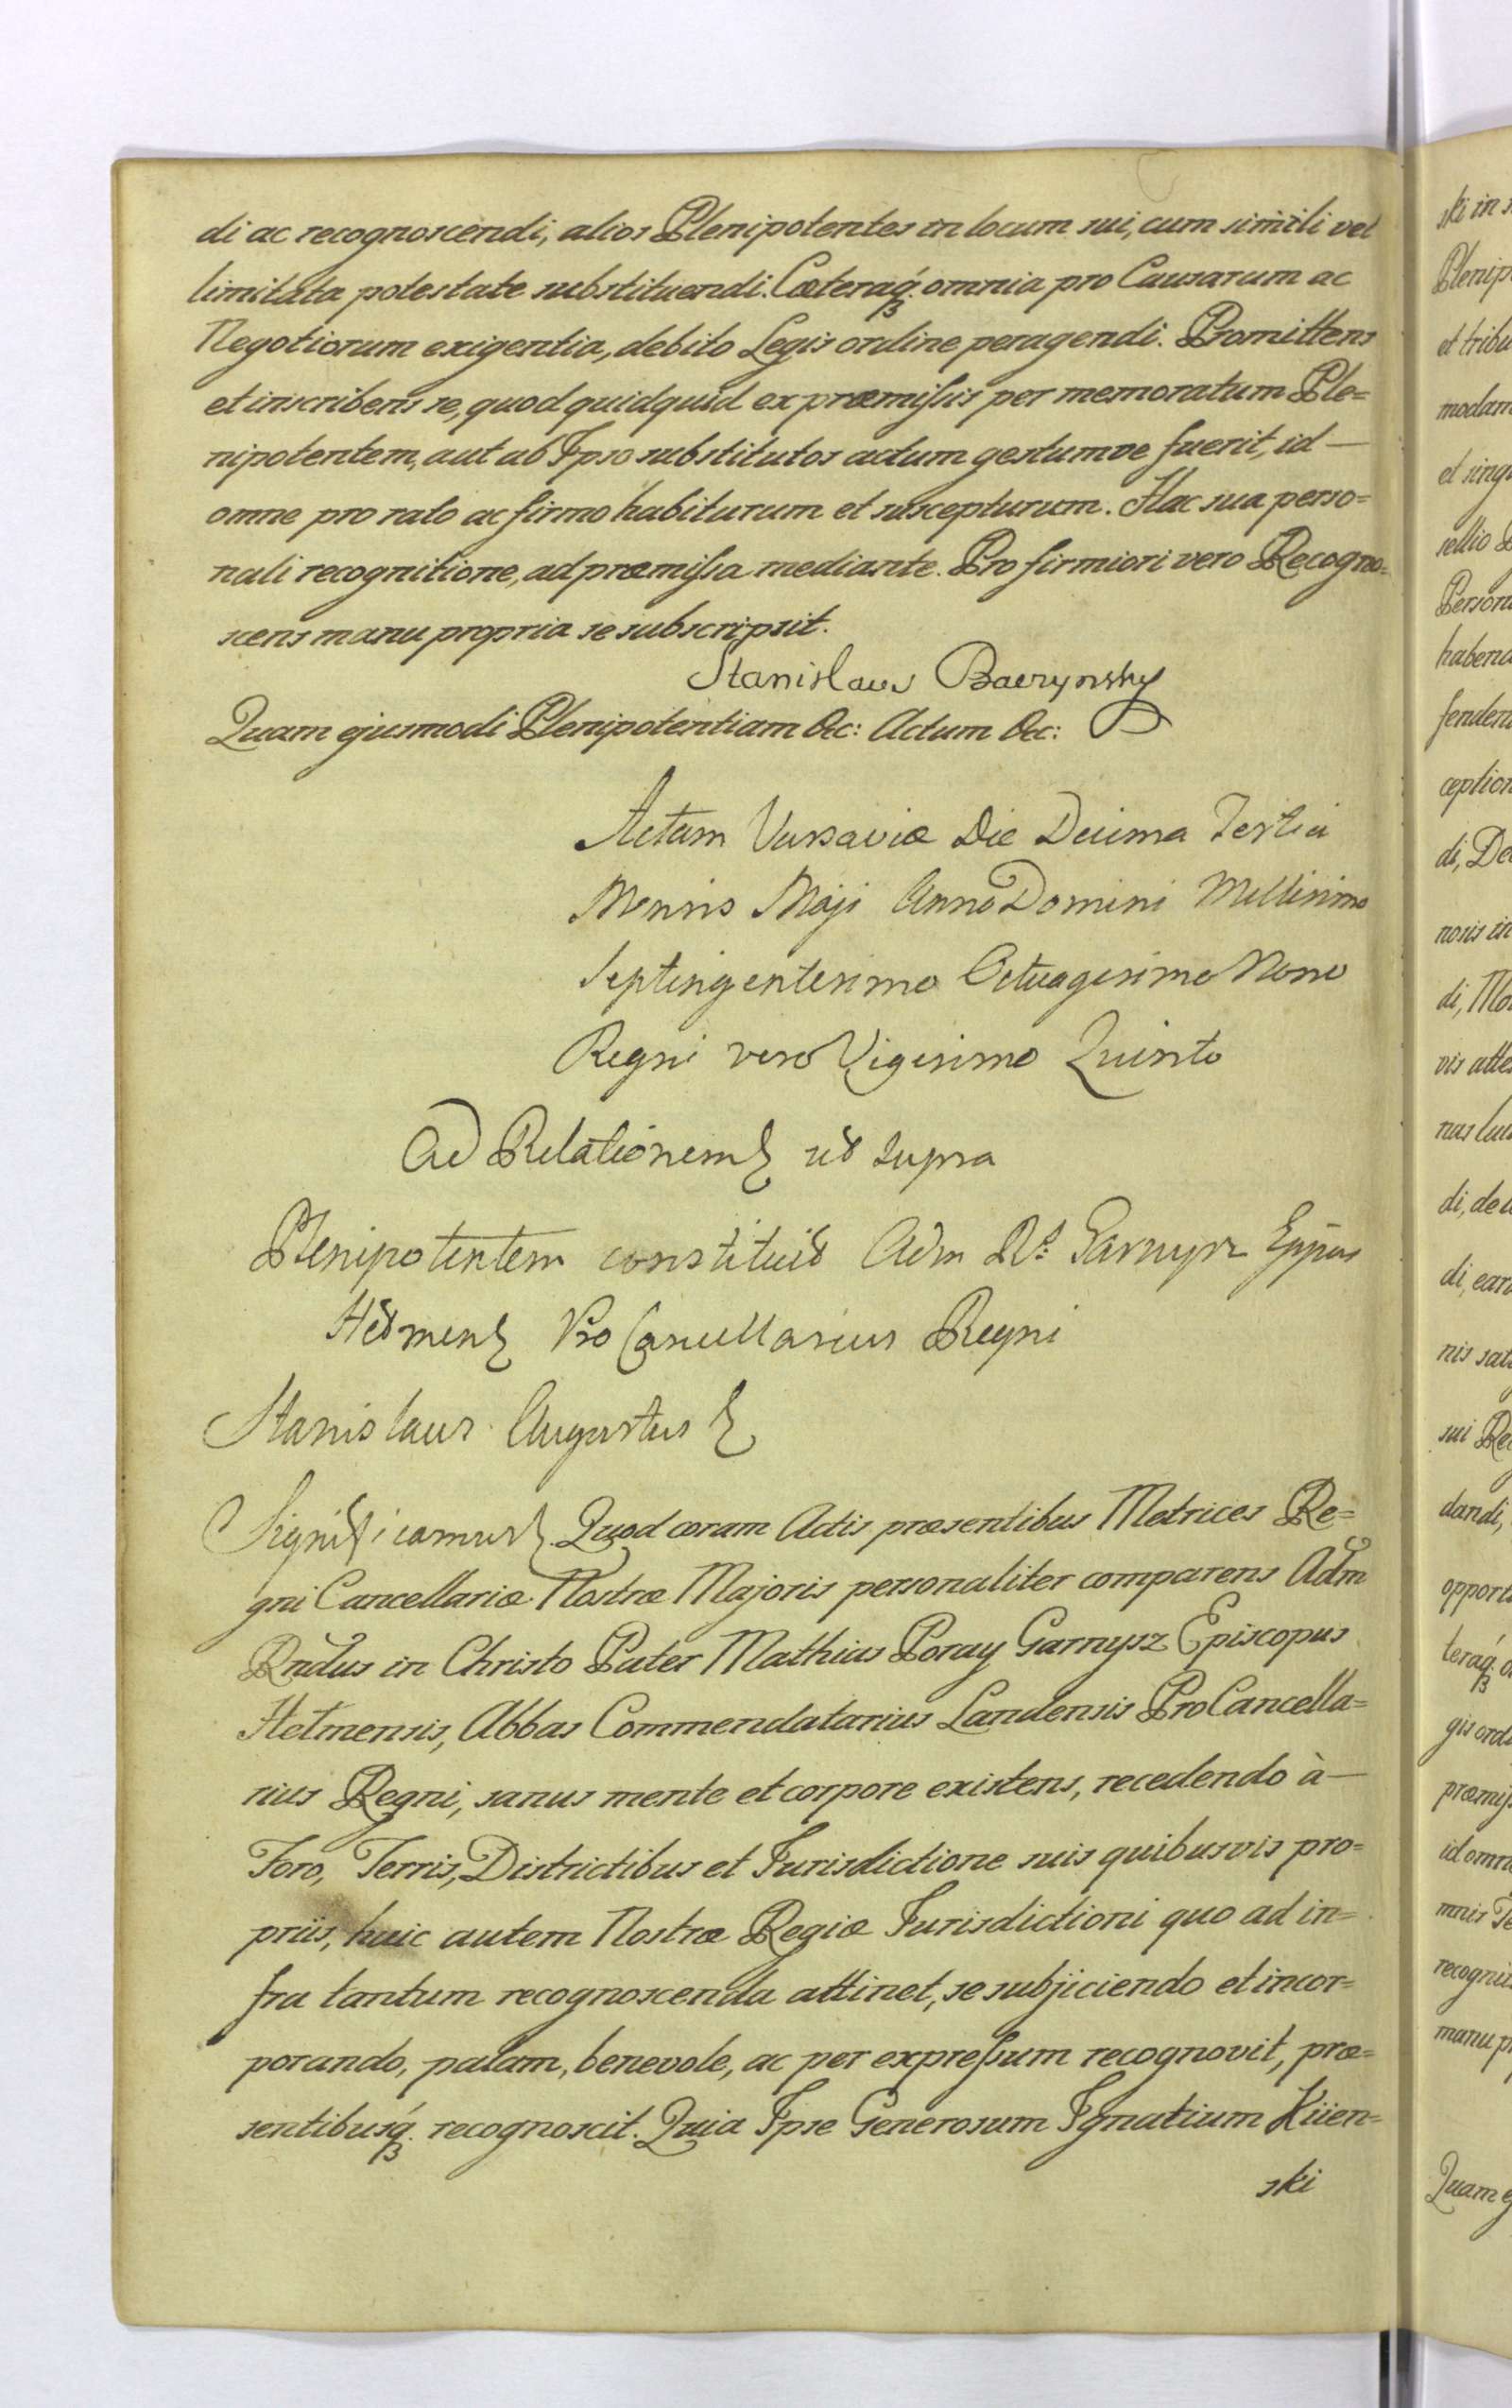 di ac recognoscendi, alios Plenipotentes in locum sui, cum simili vel
limitata potestate substituendi. Cæteraq́ꝫ omnia pro Causarum ac
Negotiorum exigentia, debito Legis ordine peragendi. Promittens
et inscribens se, quod quidquid ex præmiſsis per memoratum Ple=
nipotentem, aut ab Ipso substitutos actum gestumve fuerit, id —
omne pro rato ac firmo habiturum et suscepturum. Hac sua perso=
nali recognitione, ad præmiſsa mediante. Pro firmiori vero Recogno=
scens manu propria se subscripsit.
Stanislaus Baczynsky
Quam ejusmodi Plenipotentiam &c: Actum &c:
Actum Varsaviæ Die Decima Tertia
Mensis Maji Anno Domini Millesimo
Septingentesimo Octuagesimo Nono
Regni vero Vigesimo Quinto
Ad Relationem ut supra
Plenipotentem constituit Adm Rd: Garnysz Eppus
Helmen Pro Cancellarius Regni
Stanislaus Augustus
Significamus Quod coram Actis præsentibus Metrices Re=
gni Cancellariæ Nostræ Majoris personaliter comparens Adm
Rndus in Christo Pater Mathias Poray Garnysz Episcopus
Helmensis, Abbas Commendatarius Landensis ProCancella=
rius Regni, sanus mente et corpore existens, recedendo à —
Foro, Terris, Districtibus et Jurisdictione suis quibusvis pro=
priis, huic autem Nostræ Regiæ Jurisdictioni quo ad in=
fra tantum recognoscenda attinet, se subjiciendo et incor=
porando, palam, benevole, ac per expreſsum recognovit, præ=
sentibusq́ꝫ recognoscit. Quia Ipse Generosum Ignatium Kiien=
ski